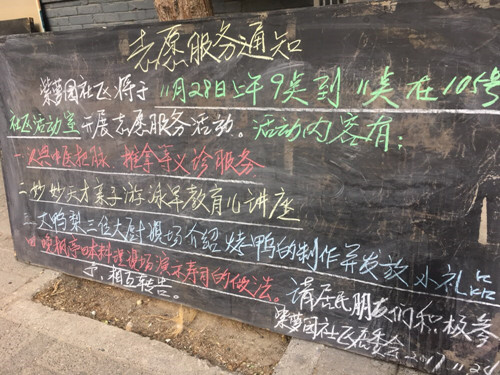 志愿服务通知
紫芳园社区将于11月28日上午9点到11点在105号
社区活动室开展志愿服务活动。活动内容有:
一、中医把脉 推拿等义诊服务
二、妙妙天才亲子游泳早教育儿讲座
三、大鸭梨三位大厨现场介绍烤鸭的制作并发放小礼品
四、日本料理现场展示寿司的做法。请居民朋友们积极参
相互转告。
紫芳园社区居委会 2017.11.24